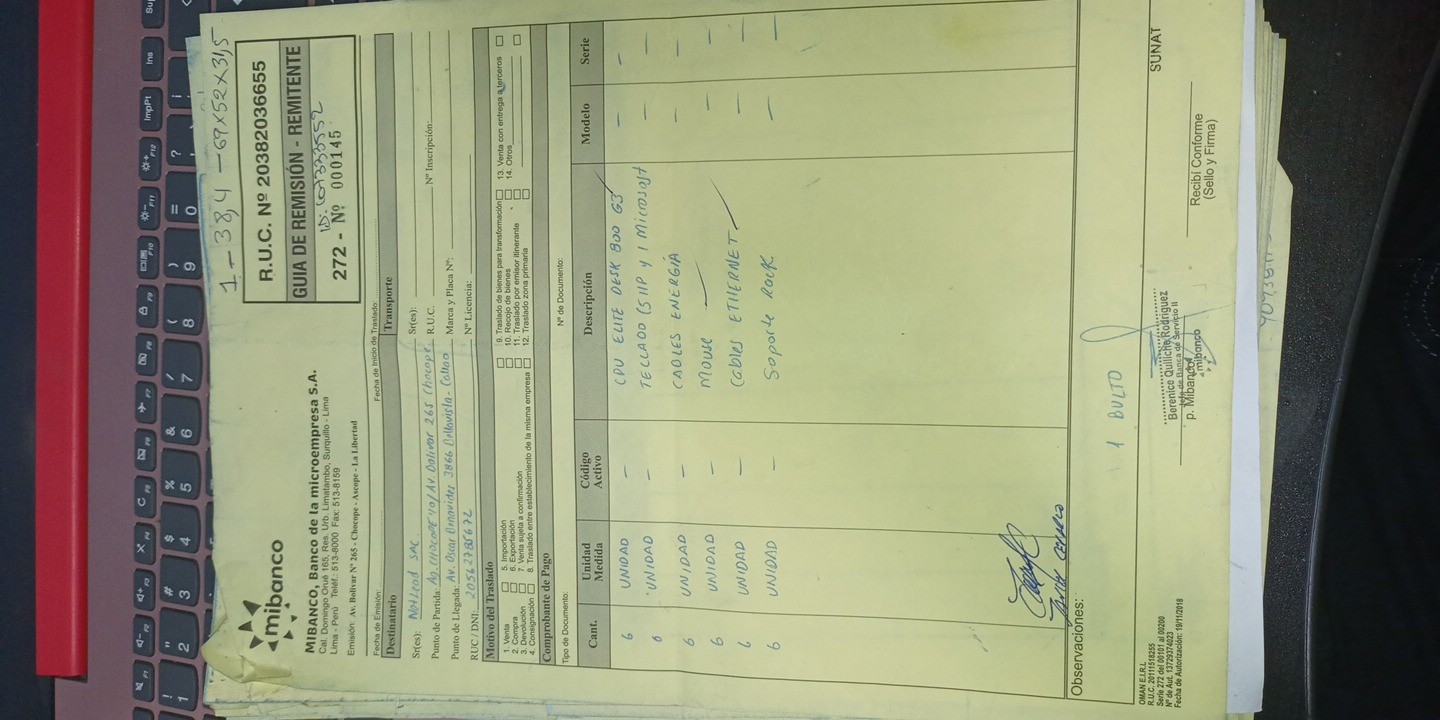 1 - 38,4 - 69x52x31,5
mibanco
MIBANCO, Banco de la microempresa S.A.
Cal. Domingo Orué 165, Res. Urb. Limatambo, Surquillo - Lima
Lima - Perú Teléf.: 513-8000 Fax: 513-8159
Emisión: Av. Bolivar N° 265 - Chocope - Ascope - La Libertad
R.U.C. Nº 20382036655
GUIA DE REMISIÓN - REMITENTE
272 - Nº 000145
Fecha de Emisión:
Fecha de Inicio de Traslado:
Destinatario
Transporte
Sr(es):
SAC
Sr(es):
Punto de Partida: Ag. CHOCOPE 401 Av. Bolivar 265 Chocope
R.U.C.
Nº Inscripción:
Punto de Llegada: Av. Oscar Benavides 3866 Bellavista - Callao
Marca y Placa Nº:
RUC / DNI: 20562785672
Nº Licencia:
Motivo del Traslado
1. Venta
2. Compra
3. Devolución
4. Consignación
5. Importación
6. Exportación
7. Venta sujeta a confirmación
8. Traslado entre establecimiento de la misma empresa
9. Traslado de bienes para transformación
10. Recojo de bienes
11. Traslado por emisor itinerante
12. Traslado zona primaria
13. Venta con entrega a terceros
14. Otros
Comprobante de Pago
Tipo de Documento:
Nº de Documento:
Cant. Unidad Medida Código Activo Descripción Modelo Serie
6 UNIDAD - CPU ELITE DESK 800 G3 - -
6 UNIDAD - TECLADO (5 HP y 1 Microsoft - -
6 UNIDAD - CABLES ENERGIA - -
6 UNIDAD - Mouse - -
6 UNIDAD - Cables ETHERNET - -
6 UNIDAD - Soporte Rock - -
Observaciones:
1 BULTO
OMAN E.I.R.L
R.U.C. 20111518255
Serie 272 del 00101 al 00200
Nº de Aut. 13729374023
Fecha de Autorización: 19/11/2018
Berenice Quiliche Rodriguez
Jefe de Banca de Servicio II
p. Mibanco
mibanco
Recibí Conforme
(Sello y Firma)
SUNAT